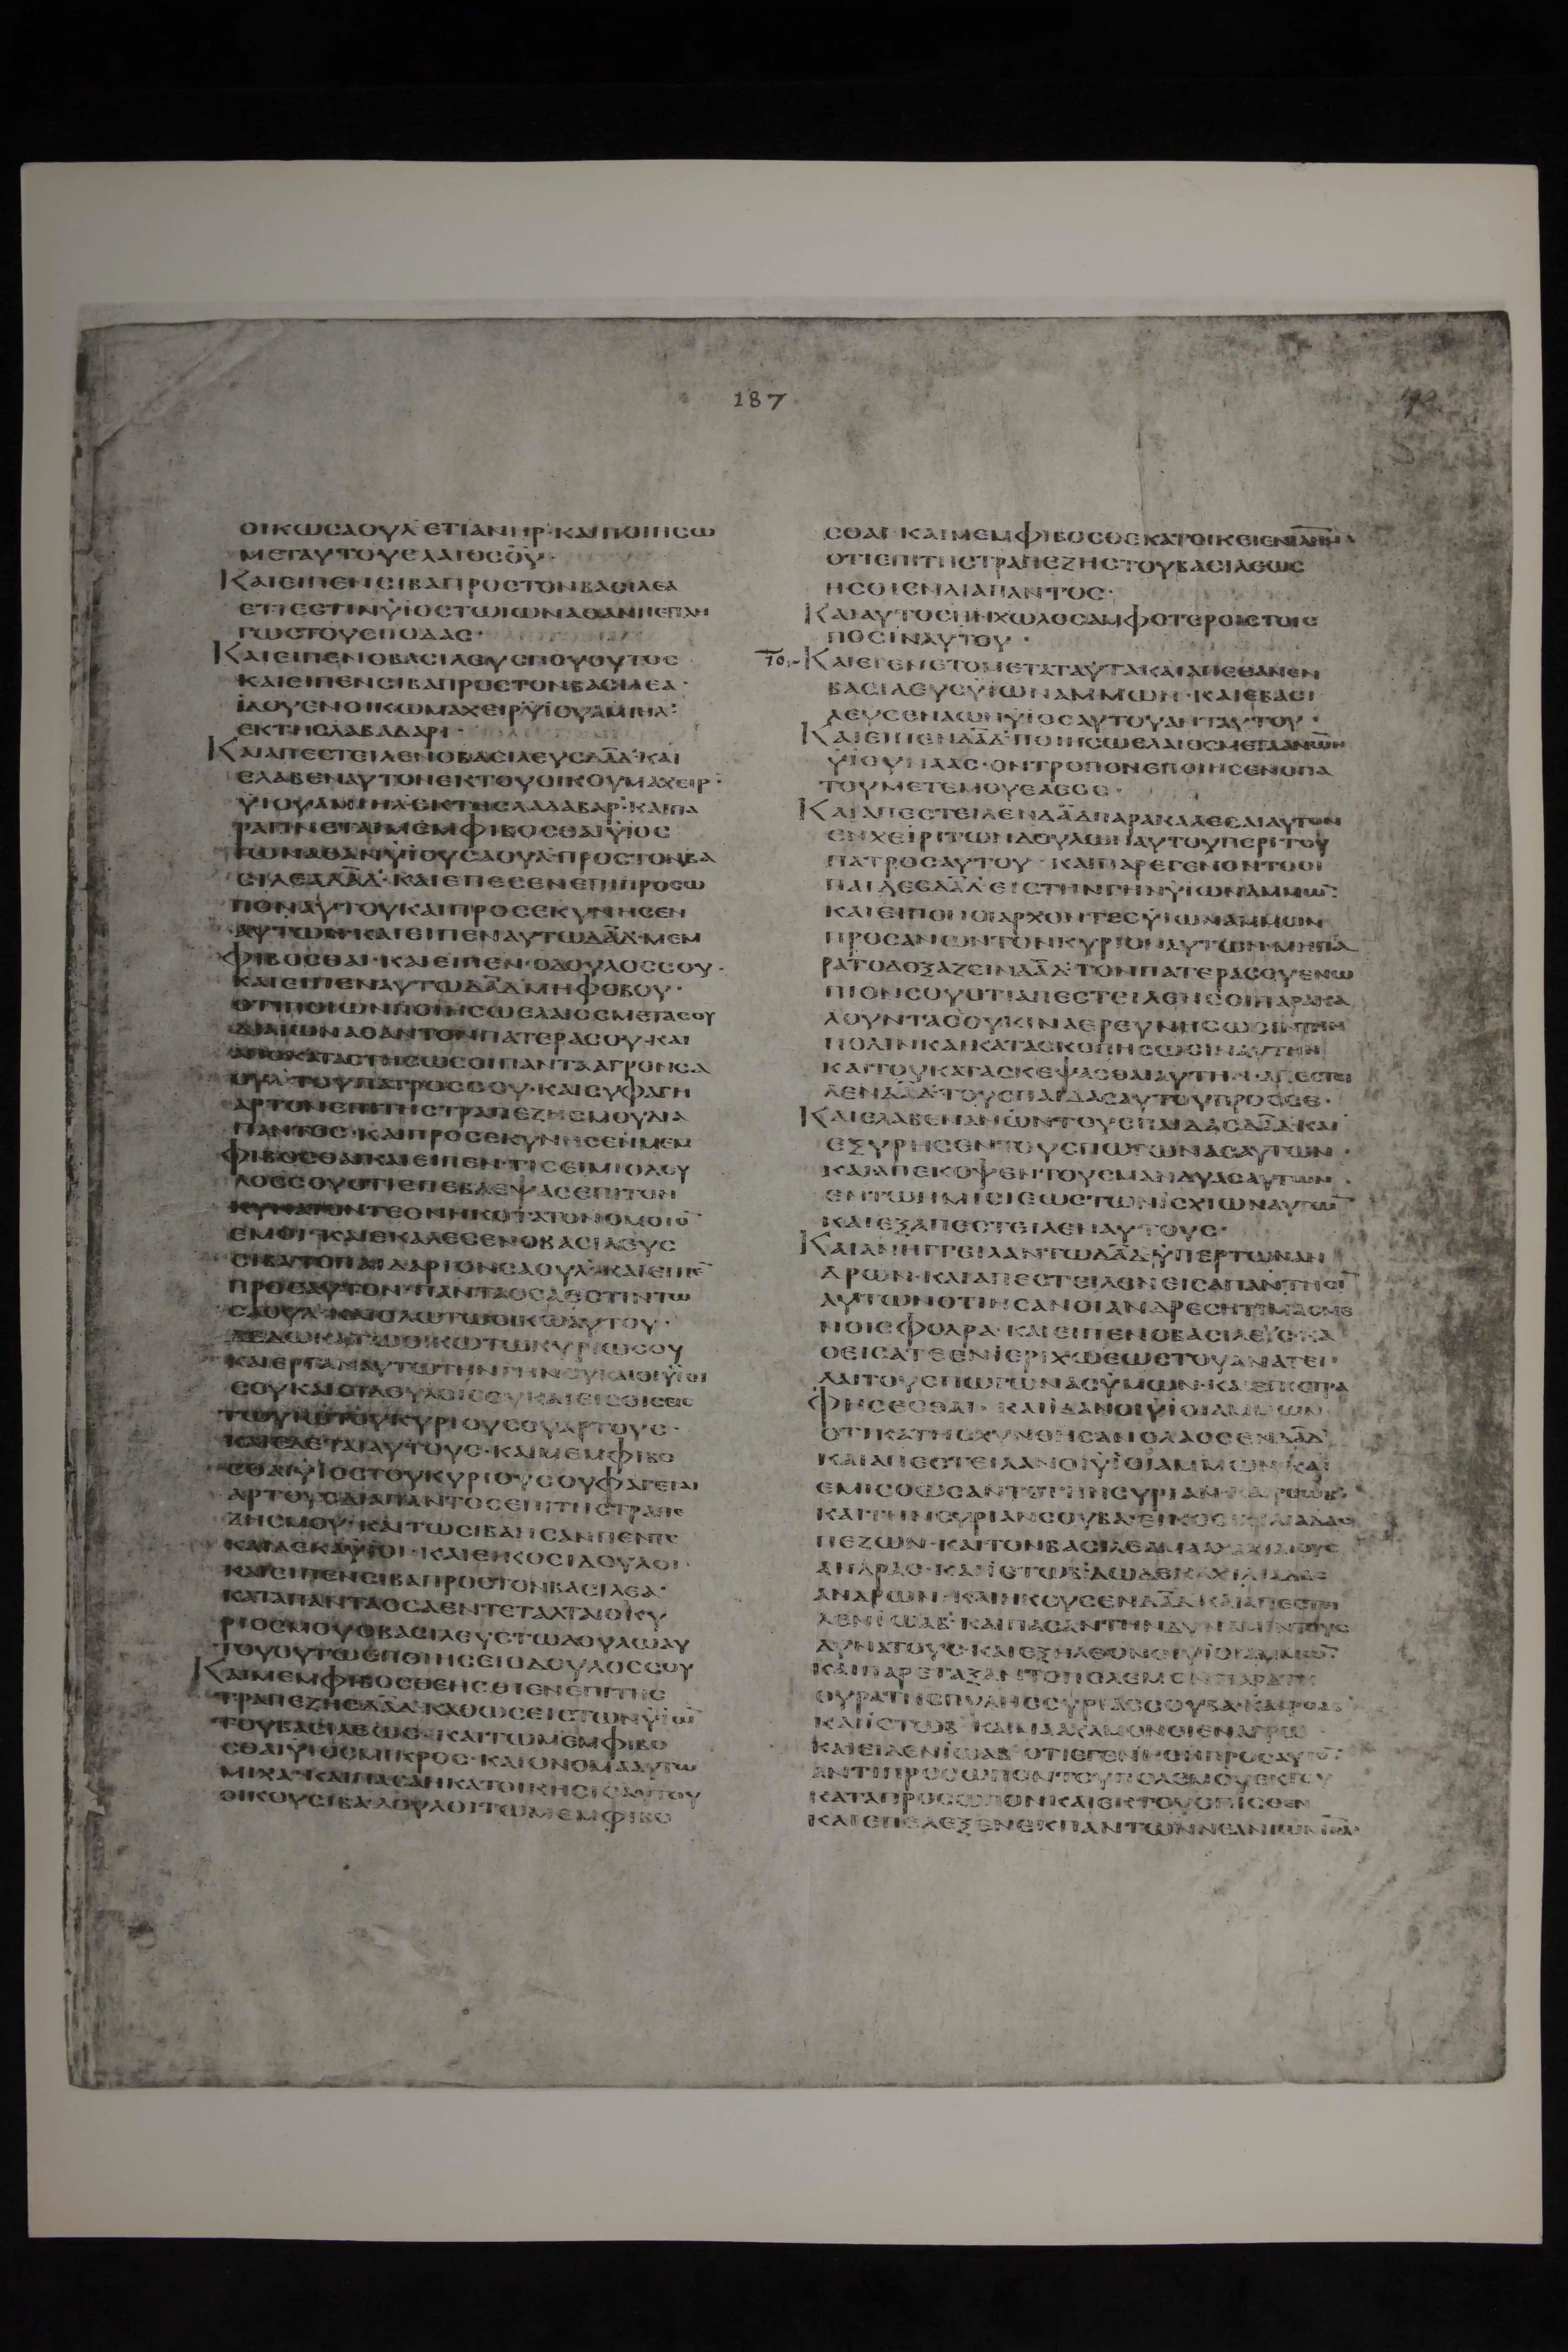 187
ΟΙΚΩCΑΟΥΛ ΕΤΙΑΝΗΡ·ΚΑΙΠΟΙΗCΩ
ΜΕΤΑΥΤΟΥΕΛΑΙΟCΘ̅Υ̅·
ΚΑΙΕΙΠΕΝCΙΒΑΠΡΟCΤΟΝΒΑCΙΛΕΑ
ΕΤΙΕCΤΙΝΫΙΟCΤΩΙΩΝΑΘΑΝΠΕΠΛΗ
ΓΩCΤΟΥCΠΟΔΑC·
ΚΑΙΕΙΠΕΝΟΒΑCΙΛΕΥCΠΟΥΟΥΤΟC
ΚΑΙΕΙΠΕΝCΙΒΑΠΡΟCΤΟΝΒΑCΙΛΕΑ·
ΪΔΟΥΕΝΟΙΚΩΜΑΧΕΙΡΫΙΟΥΑΜΙΗΛ·
ΕΚΤΗCΛΑΒΑΔΑΡ·
ΚΑΙΑΠΕCΤΕΙΛΕΝΟΒΑCΙΛΕΥCΔΑ̅Δ̅·ΚΑΙ
ΕΛΑΒΕΝΑΥΤΟΝΕΚΤΟΥΟΙΚΟΥΜΑΧΕΙΡ·
ΫΙΟΥΑΜΙΗΛ·ΕΚΤΗCΛΑΔΑΒΑΡ·ΚΑΙΠΑ
ΡΑΓΙΝΕΤΑΙΜΕΜΦΙΒΟCΘΑΙΫΙΟC
ΪΩΝΑΘΑΝΫΙΟΥCΑΟΥΛ·ΠΡΟCΤΟΝΒΑ
CΙΛΕΑΔΑ̅Δ̅·ΚΑΙΕΠΕCΕΝΕΠΙΠΡΟCΩ
ΠΟΝΑΥΤΟΥΚΑΙΠΡΟCΕΚΥΝΗCΕΝ
ΑΥΤΩ·ΚΑΙΕΙΠΕΝΑΥΤΩΔΑ̅Δ̅·ΜΕΜ
ΦΙΒΟCΘΑΙ·ΚΑΙΕΙΠΕΝ·ΟΔΟΥΛΟCCΟΥ·
ΚΑΙΕΙΠΕΝΑΥΤΩΔΑ̅Δ̅ΜΗΦΟΒΟΥ·
ΟΤΙΠΟΙΩΝΠΟΙΗCΩΕΛΑΙΟCΜΕΤΑCΟΥ
ΔΙΑΙΩΝΑΘΑΝΤΟΝΠΑΤΕΡΑCΟΥ·ΚΑΙ
ΑΠΟΚΑΤΑCΤΗCΩCΟΙΠΑΝΤΑΑΓΡΟΝCΑ
ΟΥΛ·ΤΟΥΠΑΤΡΟCCΟΥ·ΚΑΙCΥΦΑΓΗ
ΑΡΤΟΝΕΠΙΤΗCΤΡΑΠΕΖΗCΜΟΥΔΙΑ
ΠΑΝΤΟC·ΚΑΙΠΡΟCΕΚΥΝΗCΕΝΜΕΜ
ΦΙΒΟCΘΑΙΚΑΙΕΙΠΕΝ·ΤΙCΕΙΜΙΟΔΟΥ
ΛΟCCΟΥΟΤΙΕΠΕΒΛΕΨΑCΕΠΙΤΟΝ
ΚΥΝΑΤΟΝΤΕΘΝΗΚΟΤΑΤΟΝΟΜΟΙΟ̅
ΕΜΟΙ·ΚΑΙΕΚΑΛΕCΕΝΟΒΑCΙΛΕΥC
CΙΒΑΤΟΠΑΙΔΑΡΙΟΝCΑΟΥΛ·ΚΑΙΕΙΠΕ̅
ΠΡΟCΑΥΤΟΝ·ΠΑΝΤΑΟCΑΕCΤΙΝΤΩ
CΑΟΥΛ·ΚΑΙΟΛΩΤΩΟΙΚΩΑΥΤΟΥ·
ΔΕΔΩΚΑΤΩΟΙΚΩΤΩΚΥΡΙΩCΟΥ
CΟΥΚΑΙΟΙΔΟΥΛΟΙCΟΥΚΑΙΕΙCΟΙCΕΙC
ΤΩΥΙΩΤΟΥΚΥΡΙΟΥCΟΥΑΡΤΟΥC·
ΚΑΙΕΔΕΤΑΙΑΥΤΟΥC·ΚΑΙΜΕΜΦΙΒΟ
CΘΑΙΫΙΟCΤΟΥΚΥΡΙΟΥCΟΥΦΑΓΕΤΑΙ
ΑΡΤΟΥCΔΙΑΠΑΝΤΟCΕΠΙΤΗCΤΡΑΠΕ
ΖΗCΜΟΥ·ΚΑΙΤΩCΙΒΑΗCΑΝΠΕΝΤΕ
ΚΑΙΔΕΚΑΫΙΟΙ·ΚΑΙΕΙΚΟCΙΔΟΥΛΟΙ·
ΚΑΙΕΙΠΕΝCΙΒΑΠΡΟCΤΟΝΒΑCΙΛΕΑ·
ΚΑΤΑΠΑΝΤΑΟCΑΕΝΤΕΤΑΛΤΑΙΟΚΥ
ΡΙΟCΜΟΥΟΒΑCΙΛΕΥCΤΩΔΟΥΛΩΑΥ
ΤΟΥΟΥΤΩCΠΟΙΗCΕΙΟΔΟΥΛΟCCΟΥ
ΚΑΙΜΕΜΦΙΒΟCΘΕΗCΘΙΕΝΕΠΙΤΗC
ΤΡΑΠΕΖΗCΔΑ̅Δ̅·ΚΑΘΩCΕΙCΤΩΝΫΙΩ̅
ΤΟΥΒΑCΙΛΕΩC·ΚΑΙΤΩΜΕΜΦΙΒΟ
CΘΑΙΫΙΟCΜΙΚΡΟC·ΚΑΙΟΝΟΜΑΑΥΤΩ
ΜΙΧΑ·ΚΑΙΠΑCΑΗΚΑΤΟΙΚΗCΙCΑΥΤΟΥ
ΟΙΚΟΥCΙΒΑ·ΔΟΥΛΟΙΤΩΜΕΜΦΙΒΟ
CΘΑΙ·ΚΑΙΜΕΜΦΙΒΟCΘΕΚΑΤΟΙΚΕΙΕΝΙΛ̅Η̅Μ̅
ΟΤΙΕΠΙΤΗCΤΡΑΠΕΖΗCΤΟΥΒΑCΙΛΕΩC
ΗCΘΙΕΝΔΙΑΠΑΝΤΟC·
ΚΑΙΑΥΤΟCΗΝΧΩΛΟCΑΜΦΟΤΕΡΟΙCΤΟΙC
ΠΟCΙΝΑΥΤΟΥ·
ΚΑΙΕΓΕΝΕΤΟΜΕΤΑΤΑΥΤΑΚΑΙΑΠΕΘΑΝΕΝ
ΒΑCΙΛΕΥCΥΙΩΝΑΜΜΩΝ·ΚΑΙΕΒΑCΙ
ΛΕΥCΕΝΑΝΩΝΫΙΟCΑΥΤΟΥΑΝΤΑΥΤΟΥ·
ΚΑΙΕΙΠΕΝΔΑ̅Δ̅·ΠΟΙΗCΩΕΛΑΙΟCΜΕΤΑΑΝΩΝ
ΫΙΟΥΝΑΑC·ΟΝΤΡΟΠΟΝΕΠΟΙΗCΕΝΟΠΑ
ΤΟΥΜΕΤΕΜΟΥΕΛΕΟC·
ΚΑΙΑΠΕCΤΕΙΛΕΝΔΑ̅Δ̅ΠΑΡΑΚΑΛΕCΑΙΑΥΤΟΝ
ΕΝΧΕΙΡΙΤΩΝΔΟΥΛΩΝΑΥΤΟΥΠΕΡΙΤΟΥ
ΠΑΤΡΟCΑΥΤΟΥ·ΚΑΙΠΑΡΕΓΕΝΟΝΤΟΟΙ
ΠΑΙΔΕCΔΑ̅Δ̅ΕΙCΤΗΝΓΗΝΫΙΩΝΑΜΜΩ̅·
ΚΑΙΕΙΠΟΝΟΙΑΡΧΟΝΤΕCΫΙΩΝΑΜΜΩΝ
ΠΡΟCΑΝΩΝΤΟΝΚΥΡΙΟΝΑΥΤΩΝ·ΜΗΠΑ
ΡΑΤΟΔΟΞΑΖΕΙΝΔΑ̅Δ̅·ΤΟΝΠΑΤΕΡΑCΟΥΕΝΩ
ΠΙΟΝCΟΥΟΤΙΑΠΕCΤΕΙΛΕΝCΟΙΠΑΡΑΚΑ
ΛΟΥΝΤΑCΟΥΚΙΝΑΕΡΕΥΝΗCΩCΙΝΤΗΝ
ΠΟΛΙΝΚΑΙΚΑΤΑCΚΟΠΗCΩCΙΝΑΥΤΗΝ
ΚΑΙΤΟΥΚΑΤΑCΚΕΨΑCΘΑΙΑΥΤΗΝ·ΑΠΕCΤΕΙ
ΛΕΝΔΑ̅Δ̅·ΤΟΥCΠΑΙΔΑCΑΥΤΟΥΠΡΟCCΕ·
ΚΑΙΕΛΑΒΕΝΑΝΩΝΤΟΥCΠΑΙΔΑCΔΑ̅Δ̅·ΚΑΙ
ΕΞΥΡΗCΕΝΤΟΥCΠΩΓΩΝΑCΑΥΤΩΝ·
ΚΑΙΑΠΕΚΟΨΕΝΤΟΥCΜΑΝΔΥΑCΑΥΤΩΝ
ΕΝΤΩΗΜΙCΙΕΩCΤΩΝΙCΧΙΩΝΑΥΤΩ̅
ΚΑΙΕΞΑΠΕCΤΕΙΛΕΝΑΥΤΟΥC·
ΚΑΙΑΝΗΓΓΕΙΛΑΝΤΩΔΑ̅Δ̅ΫΠΕΡΤΩΝΑΝ
ΔΡΩΝ·ΚΑΙΑΠΕCΤΕΙΛΕΝΕΙCΑΠΑΝΤΗCΙ̅
ΑΥΤΩΝΟΤΙΗCΑΝΟΙΑΝΔΡΕCΗΤΙΜΑCΜΕ
ΝΟΙCΦΟΔΡΑ·ΚΑΙΕΙΠΕΝΟΒΑCΙΛΕΥC·ΚΑ
ΘΕΙCΑΤΕΕΝΙΕΡΙΧΩΕΩCΤΟΥΑΝΑΤΕΙ
ΛΑΙΤΟΥCΠΩΓΩΝΑCΫΜΩΝ·ΚΑΙΕΠΙCΤΡΑ
ΦΗCΕCΘΑΙ·ΚΑΙΪΔΑΝΟΙΫΙΟΙΑΜΜΩΝ
ΟΤΙΚΑΤΗCΧΥΝΘΗCΑΝΟΛΑΟCΕΝΔΑ̅Δ̅
ΚΑΙΑΠΕCΤΕΙΛΑΝΟΙΫΙΟΙΑΜΜΩΝ·ΚΑΙ
ΠΕΖΩΝ·ΚΑΙΤΟΝΒΑCΙΛΕΑ
ΑΝΔΡΩΝ·ΚΑΙΗΚΟΥCΕΝΔΑ̅Δ̅ΚΑΙΑΠΕCΤΕΙ
ΛΕΝΪΩΑΒ·ΚΑΙΠΑCΑΝΤΗΝΔΥΝΑΜΙΝΤΟΥC
ΔΥΝΑΤΟΥC·ΚΑΙΕΞΗΛΘΟΝΟΙΫΙΟΙΑΜΜΩ̅·
ΚΑΙΕΙΔΕΝΪΩΑΒ·ΟΤΙΕΓΕΝΗΘΗΠΡΟCΑΥΤΟ̅
ΑΝΤΙΠΡΟCΩΠΟΝΤΟΥΠΟΛΕΜΟΥΕΚΤΟΥ
ΚΑΤΑΠΡΟCΩΠΟΝΚΑΙΕΚΤΟΥΟΠΙCΘΕΝ
ΚΑΙΕΠΕΛΕΞΕΝΕΚΠΑΝΤΩΝΝΕΑΝΙΩΝ